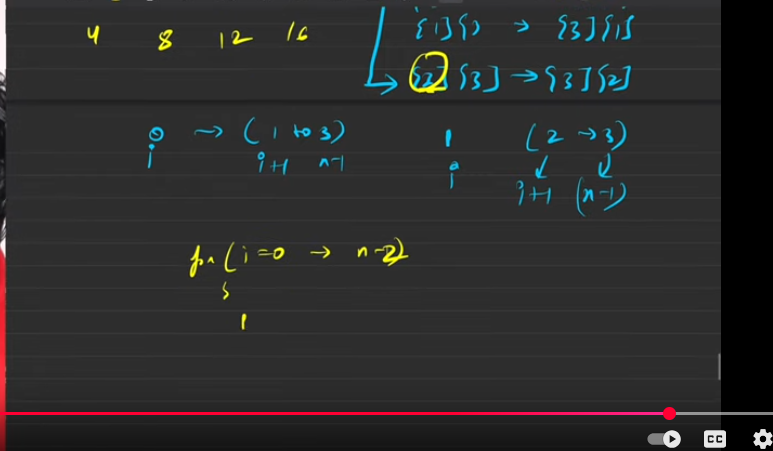 4 8 12 16
[1][3] → [3][1]
[2][3] → [3][2]
0 → (1 to 3)
i i+1 n-1
1 (2 → 3)
i i+1 (n-1)
for (i=0 → n-2)
{
CC